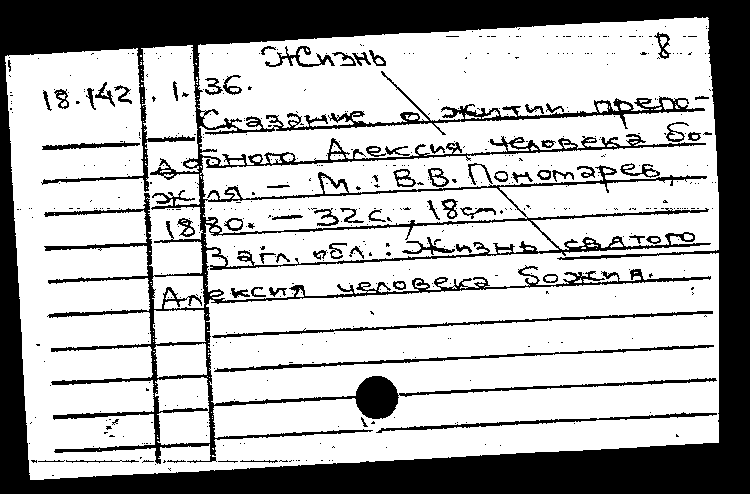 Жизнь 8
18.142.1.36.
Сказание о житии препо-
добного Алексия человека бо-
жия. — М. : В.В. Пономарев,
1880. — 32 с. ; 18 см.
Загл. обл. : Жизнь святого
Алексия человека божия.